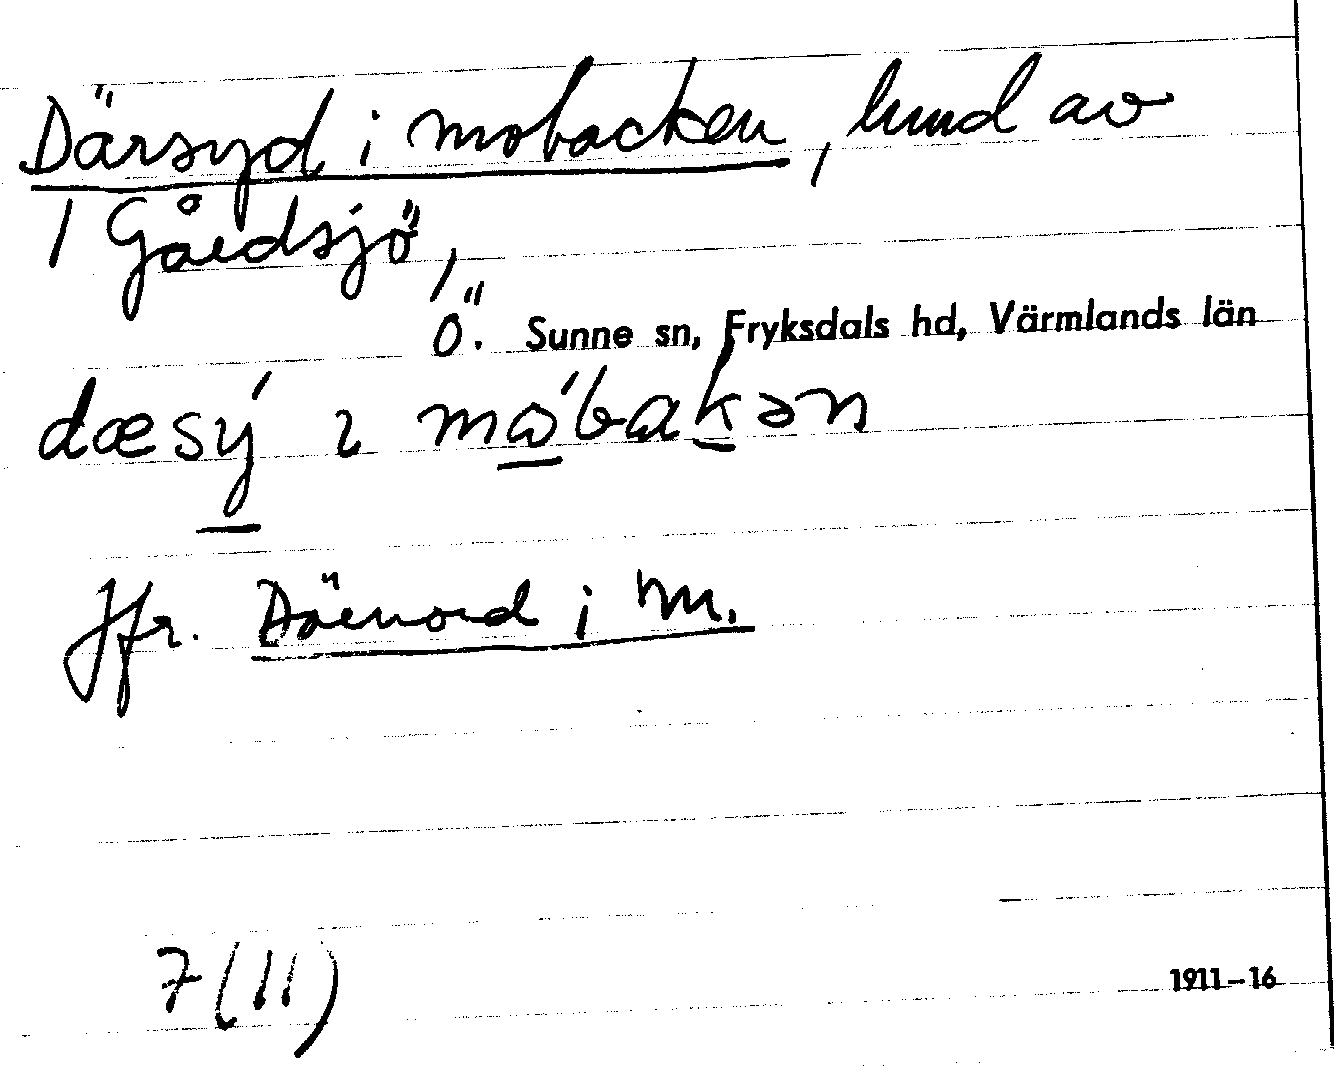 Därsyd i mobacken, lund av
/ Gårdsjö,
Ö. Sunne sn, Fryksdals hd, Värmlands län
dæsý ı mɷ́bakən
Jfr. Därnord i M.
7(11)
1911–16